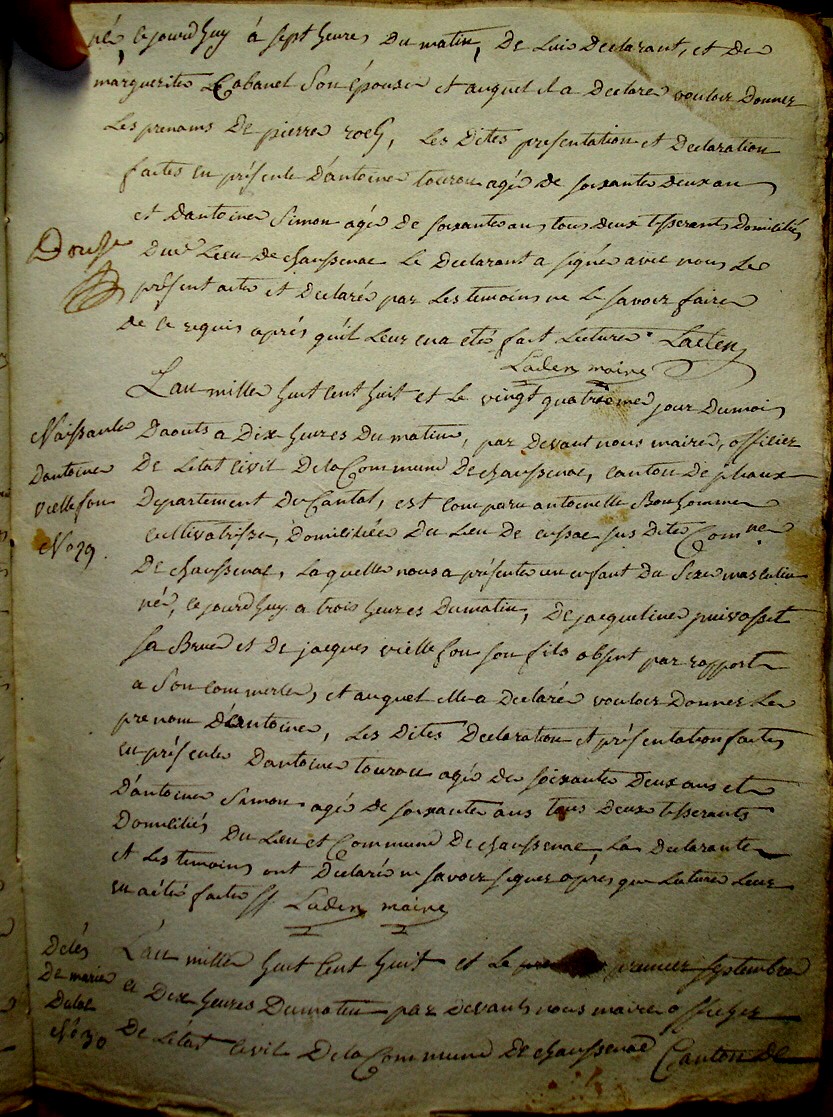 né, cejourdhuy à sept heures du matin, de luis déclarant, et de
marguerite Cabanet son épouse et auquel il a déclaré vouloir donner
les prenoms de pierre roch, les dites presentation et declaration
faites en présente d'antoine tourou agée de soixante deux an
et d'antoine Simon agée de soixante ans tous deux tisserants domiciliés
du lieu de chaussenac le declarant a signé avec nous le
présent acte et déclaré par les temoins ne le savoir faire
de ce requis après qu'il leur en a eté fait lecture. Lacten
Laden maire
L'an mille huit cent huit et le vingt quatrieme jour du mois
Naissante
d'antoine
vieillefon
No 29
d'aouts a dix heures du matin, par devant nous maire, officier
de l'etat civil de la Commune de chaussenac, canton de pleaux
departement du Cantal, est comparu antoinette Bonhomme
cultivatrisse, domiciliée du lieu de cussac sus dite Comne
de chaussenac, laquelle nous a présenté un enfant du sexe masculin
né, cejourdhuy a trois heures du matin, de jacqueline puivosset
sa Brue et de jacques vieillefon son fils absent par rapport
a son commerce, et auquel elle a déclaré vouloir donner le
prenom d'antoine, les dites declaration et présentation faites
en présente d'antoine tourou agée de soixante deux ans et
d'antoine Simon agée de soixante ans tous deux tisserants
domiciliés du lieu et Commune de chaussenac la declarante
et les temoins ont declaré ne savoir signer après que lecture leur
en a été faite // Laden maire
Délés
de marie
Dulac
No 30
L'an mille huit cent huit et le premier septembre
a dix heures du matin par devant nous maire officier
de l'état civil de la Commune de chaussenac Canton de